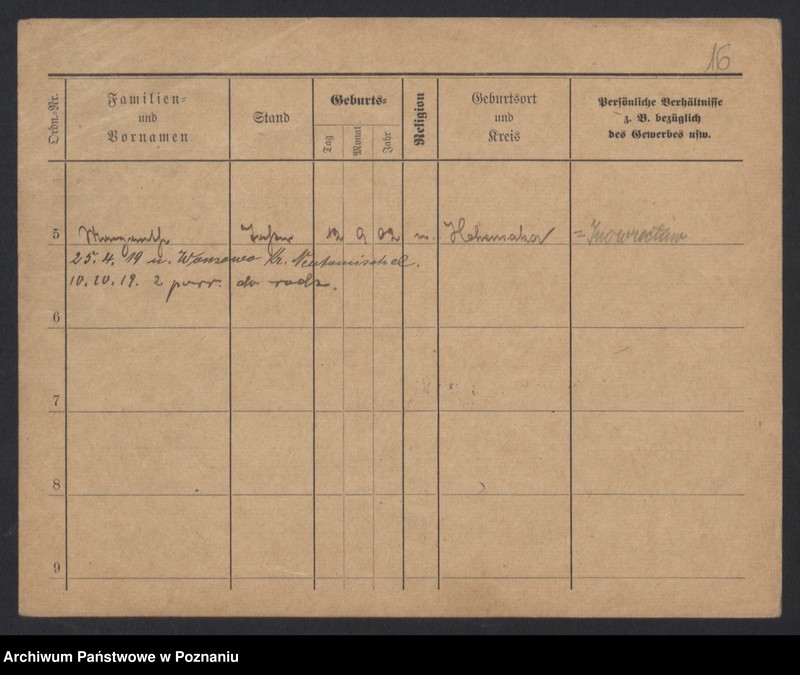 16
Ordn.-Nr.
Familien-
und
Vornamen
Stand
Geburts-
Tag
Monat
Jahr
Religion
Geburtsort
und
Kreis
Persönliche Verhältnisse
z. B. bezüglich
des Gewerbes usw.
5 12 9 02 Hohensalza = Inowrocław
25. 4. 19 n. Wonsowo Kr. Neutomischel.
10. 10. 19. z powr. do rodz.
6
7
8
9
Archiwum Państwowe w Poznaniu